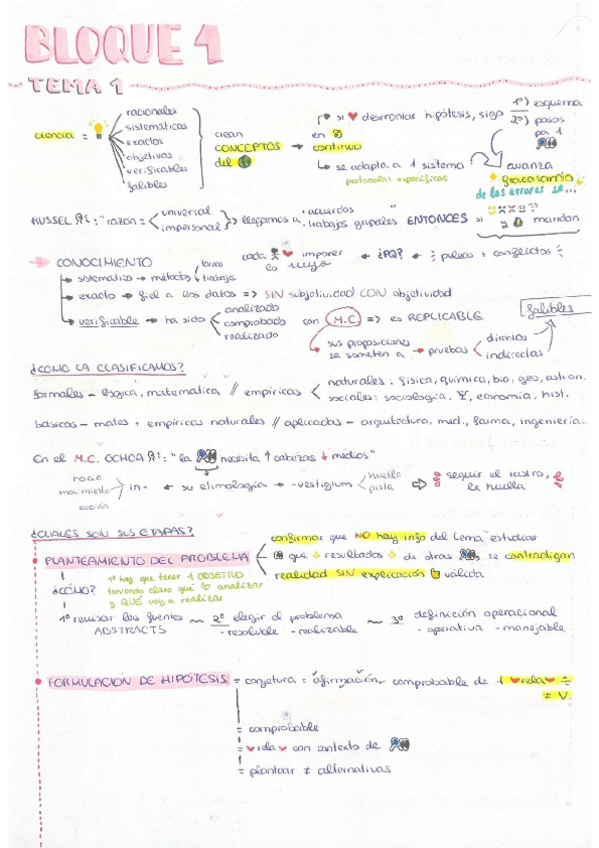 BLOQUE 1
TEMA 1
ciencia =
racionales
sistemáticas
exactos
objetivas
verificables
falibles
crean
CONCEPTOS
del
en
continuo
si desmontar hipótesis, sigo
1º) esquema
2º) pasos
pa 1
se adapta a 1 sistema
protocolos específicos
avanza
fracasando
de los errores se...
HUSSEL : "razón =
universal
impersonal
llegamos a "acuerdos
trabajos grupales" ENTONCES si
mandan
CONOCIMIENTO
cada imponer
lo suyo
¿PQ?
peleas + conflictos
sistemático → método
tareas
trabajo
exacto → fiel a los datos => SIN subjetividad CON objetividad
verificable → ha sido
analizado
comprobado
realizado
con M.C. => es REPLICABLE
falibles
sus proposiciones
se someten a → pruebas
directas
indirectas
¿CÓMO LA CLASIFICAMOS?
formales - lógica, matemática // empíricas
naturales: física, química, bio, geo, astron.
sociales: sociología, Ψ, economía, hist.
básicas - mates + empíricas naturales // aplicadas - arquitectura, med., farma, ingeniería..
En el M.C. OCHOA : "la necesita ↑ cabezas ↓ medios"
hacia
movimiento
acción
in- ← su etimología → -vestigium
huella
pista
seguir el rastro,
la huella
¿CUALES SON SUS ETAPAS?
PLANTEAMIENTO DEL PROBLEMA
confirmar que NO hay info del tema estudias
que resultados de otras , se contradigan
realidad SIN explicación válida
¿CÓMO?
1º hay que tener 1 OBJETIVO
teniendo claro qué analizar
y QUÉ voy a realizar
1º revisar las fuentes ~ 2º elegir el problema ~ 3º definición operacional
ABSTRACTS - resoluble - realizable - operativa - manejable
FORMULACIÓN DE HIPÓTESIS = conjetura = afirmación comprobable de 1 rela
≠ V.
= comprobable
= rela con contexto de
= plantear ≠ alternativas